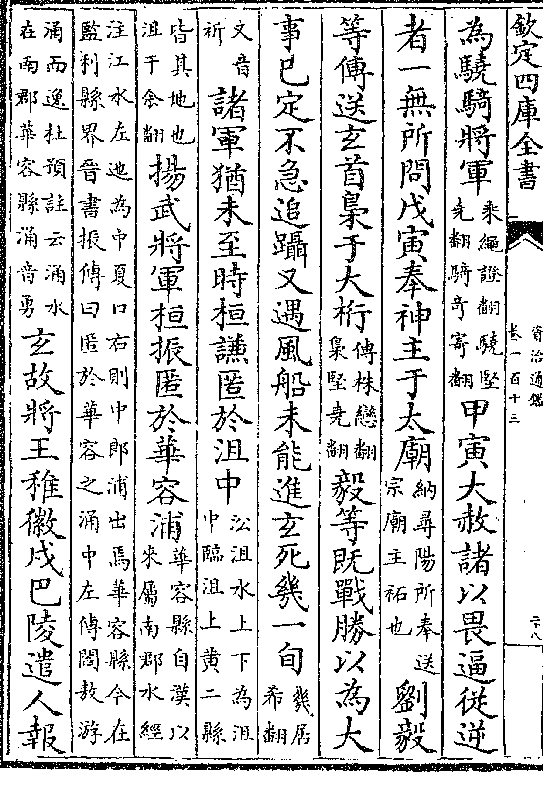 欽定四庫全書
資治通鑑
卷一百十三
二八
為驍騎將軍乗繩證翻驍堅堯翻騎奇寄翻甲寅大赦諸以畏逼從逆
者一無所問戊寅奉神主于太廟納尋陽所奉送宗廟主祏也劉毅
等傳送玄首梟于大桁傳株戀翻梟堅堯翻毅等既戰勝以為大
事已定不急追躡又遇風船未能進玄死幾一旬幾居希翻
文音祈諸軍猶未至時桓謙匿於沮中沿沮水上下為沮中臨沮上黄二縣
皆其地也沮于余翻揚武將軍桓振匿於華容浦華容縣自漢以来屬南郡水經
注江水左迆為中夏口右則中郎浦出焉華容縣今在監利縣界晉書振傳曰匿於華容之涌中左傳閻敖游
涌而逸杜預註云涌水在南郡華容縣涌音勇玄故將王稚徽戍巴陵遣人報